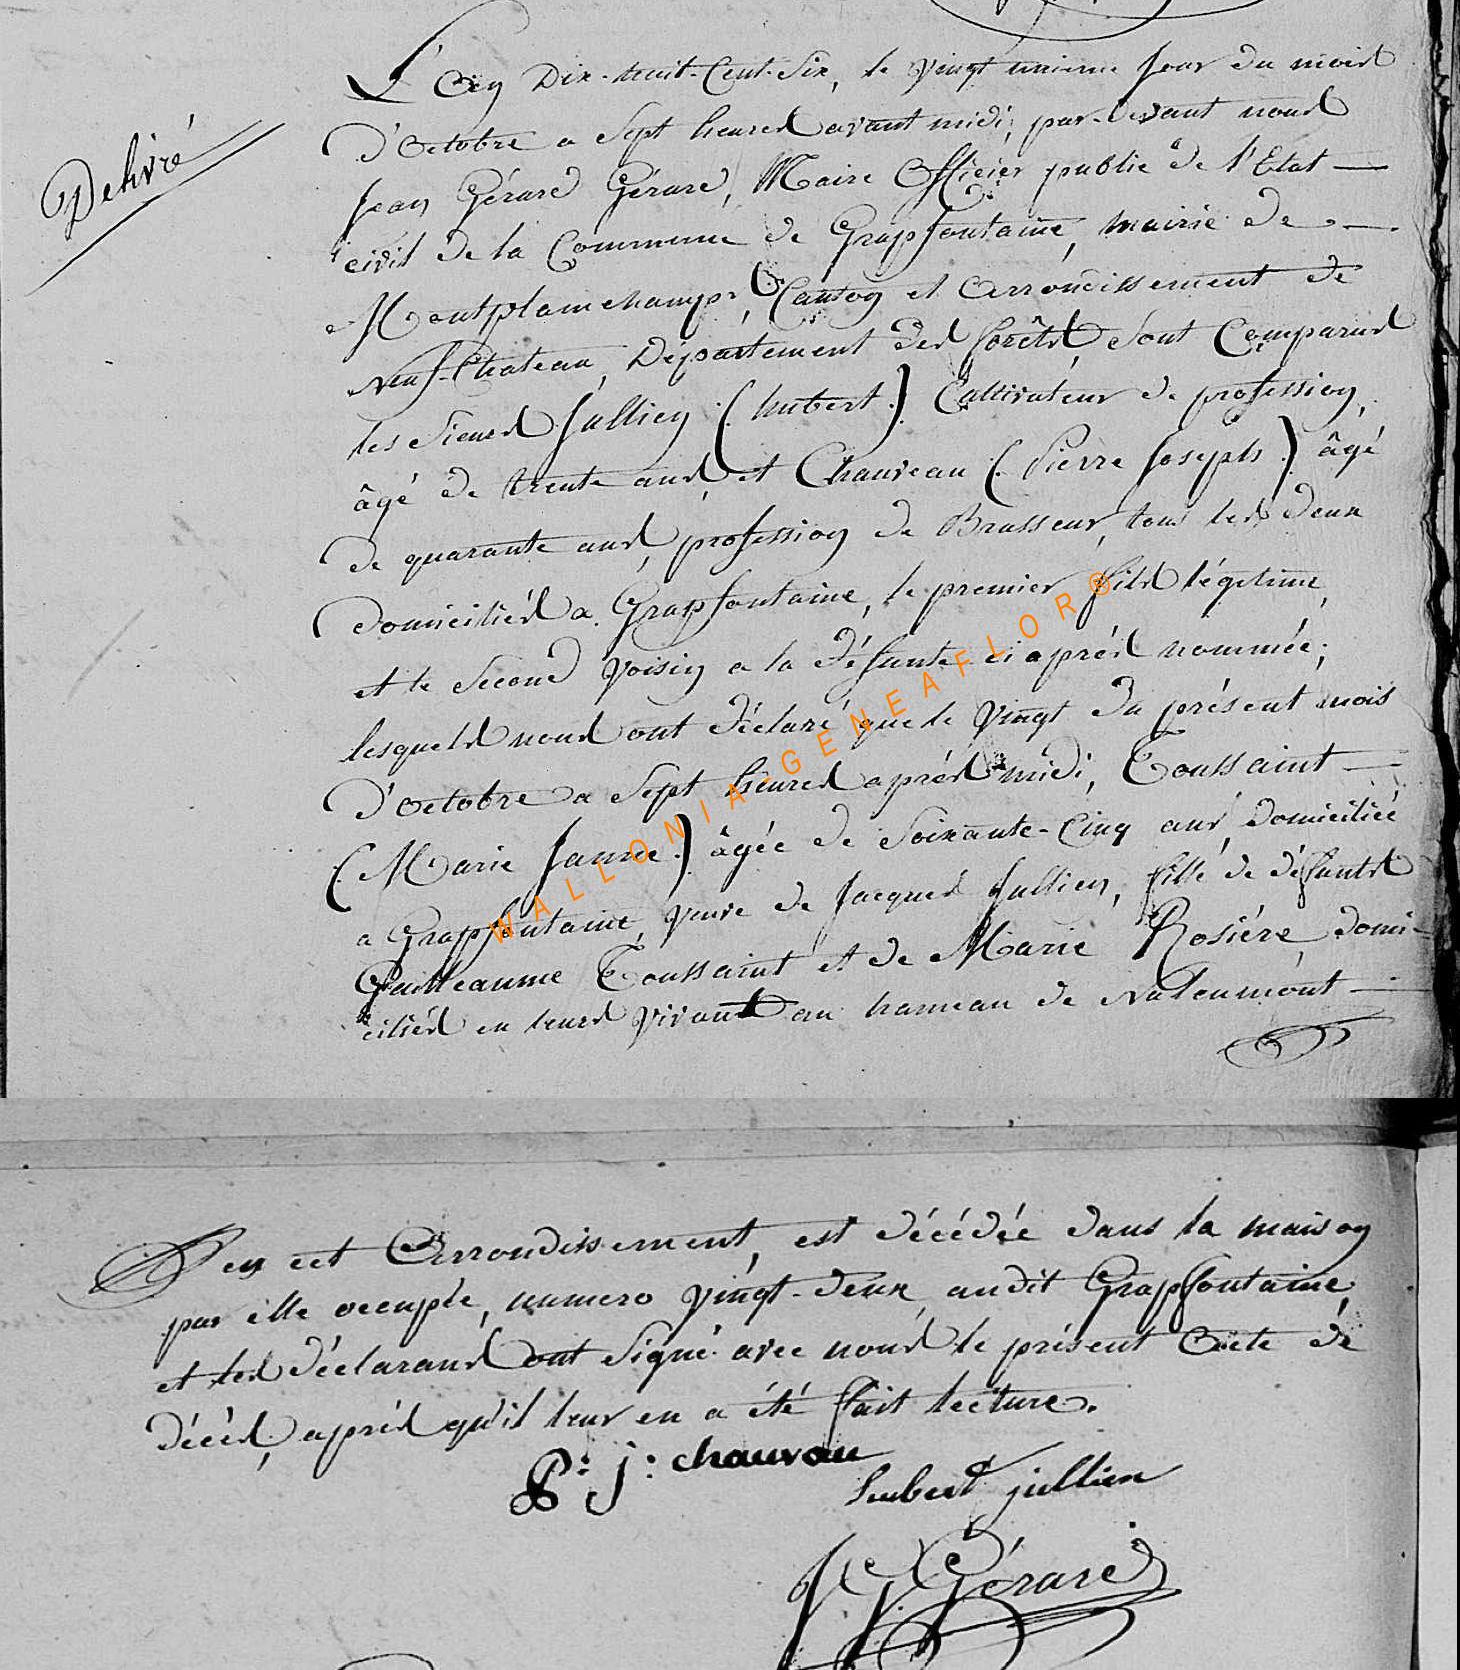 Delivré
L'an Dix-huit-Cent-Six, le Vingt unieme Jour du mois
D'Octobre a Sept heures avant midi, par-devant nous
Jean Gérard Gérard, Maire Officier public de l'Etat
civil de la Commune de Grapfontaine, mairie de
Montplainchamps, Canton et Arrondissement de
Neuf-Chateau, Département des forêts, Sont Comparus
les Sieurs Jullien (hubert) Cultivateur de profession,
âgé de trente ans, et Chauveau (Pierre Joseph) âgé
de quarante ans, profession de Brasseur, tous les deux
domiciliés a Grapfontaine, le premier fils légitime,
et le Second Voisin a la défunte ci après nommée;
lesquels nous ont déclaré que le Vingt du présent mois
D'octobre a Sept heures après midi, Toussaint
(Marie Janne) âgée de Soixante-Cinq ans, domiciliée
a Grapfontaine, Veuve de Jacques Jullien, fille de défunts
Guilleaume Toussaint et de Marie Rosière, domi-
ciliés en leurs Vivant au hameau de Naleumont
WALLONIA-GENEAFLOR®
en cet Arrondissement, est décédée dans la maison
par elle occupée, numero Vingt-deux, audit Grapfontaine
et les déclarans ont Signé avec nous le présent Acte de
décès, après qu'il leur en a été fait lecture.
P: j: chauvau
hubert jullien
J G Gérard